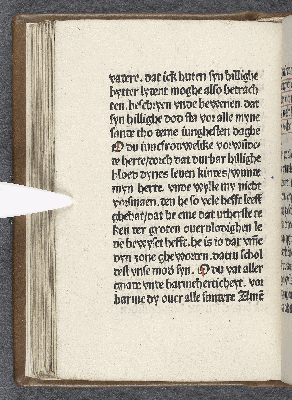 vadere. dat ick huten syn hillighe
bytter lydent moghe also betrach
ten, beschryen vnde bewenen, dat
syn hillighe dod sta vor alle myne
sunde tho deme iungesten daghe
O du iuncfrouwelike vorwunde
te herte/dorch dat durbar hillighe
bloed dynes leuen kindes/wunde
myn herte. vnde wylle my nicht
vorsmaen, den he so vele hefft leeff
ghehat/dat he eme dat utherste te
ken der groten ouerulodighen le
ue bewyset hefft. he is to dar vme
dyn sone gheworden, dattu schol
dest vnse mod syn. O du vat aller
gnade vnde barmeherticheyt. vor
barme dy ouer alle sundere Amen